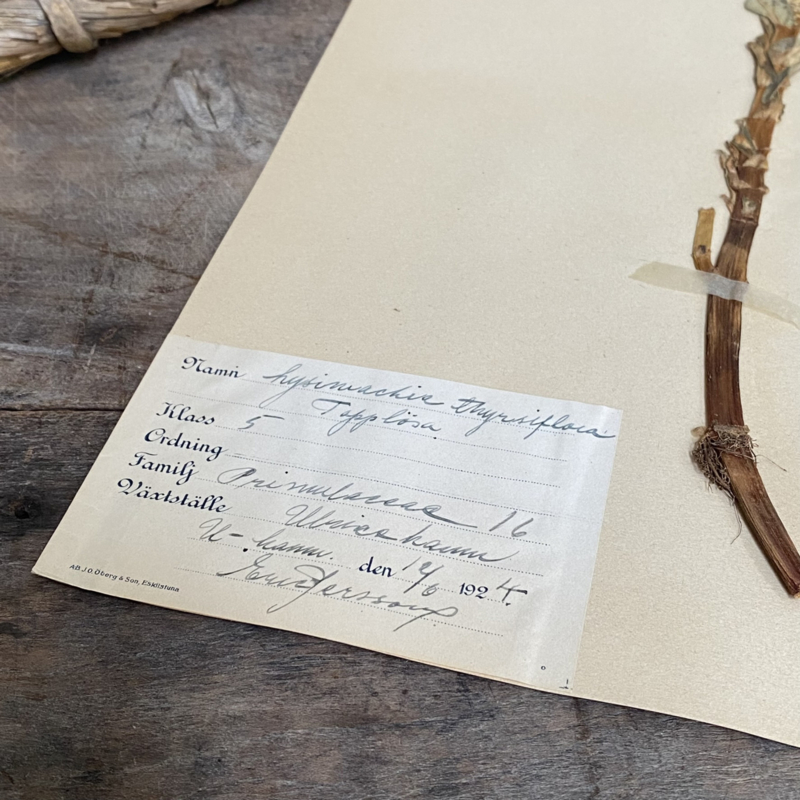 Namn Lysimachia thyrsiflora
Topplösa
Klass 5
Ordning
Familj Primulaceae 16
Växtställe Ulricehamn
U-hamn. den 12/6 1924.
AB. J. O. Öberg & Son, Eskilstuna